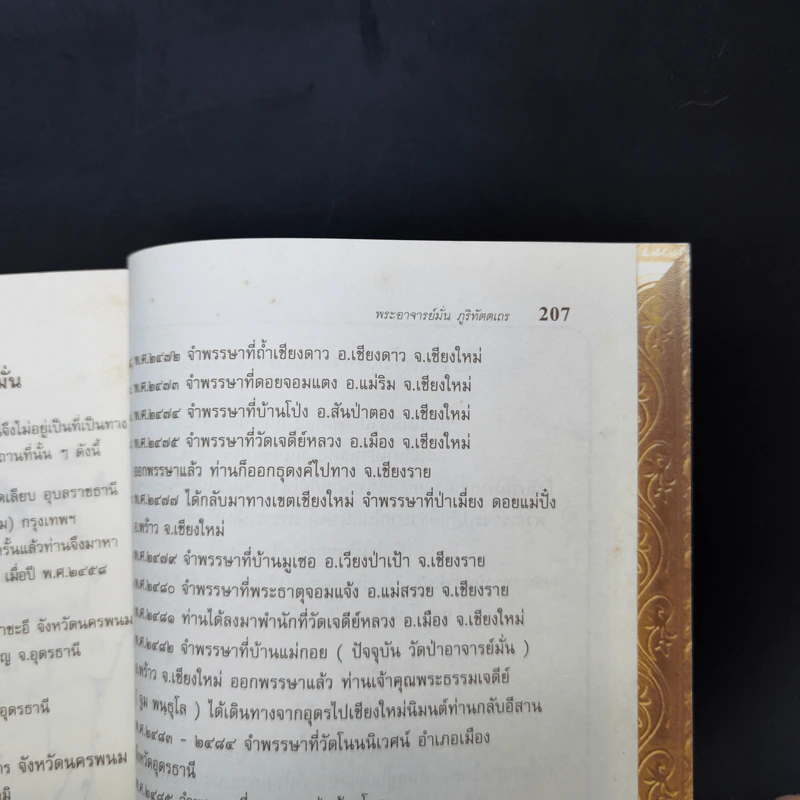 มั่น
จึงไม่อยู่เป็นที่เป็นทาง
ถานที่นั้น ๆ ดังนี้
ดเลียบ อุบลราชธานี
ม) กรุงเทพฯ
รั้นแล้วท่านจึงมาหา
เมื่อปี พ.ศ.๒๔๕๘
าชะอี จังหวัดนครพนม
ญ จ.อุดรธานี
อุดรธานี
าร จังหวัดนครพนม
พระอาจารย์มั่น ภูริทัตตเถร 207
พ.ศ.๒๔๗๒ จำพรรษาที่ถ้ำเชียงดาว อ.เชียงดาว จ.เชียงใหม่
พ.ศ.๒๔๗๓ จำพรรษาที่ดอยจอมแตง อ.แม่ริม จ.เชียงใหม่
พ.ศ.๒๔๗๔ จำพรรษาที่บ้านโป่ง อ.สันป่าตอง จ.เชียงใหม่
พ.ศ.๒๔๗๕ จำพรรษาที่วัดเจดีย์หลวง อ.เมือง จ.เชียงใหม่
ออกพรรษาแล้ว ท่านก็ออกธุดงค์ไปทาง จ.เชียงราย
พ.ศ.๒๔๗๗ ได้กลับมาทางเขตเชียงใหม่ จำพรรษาที่ป่าเมี่ยง ดอยแม่ปั๋ง
อ.พร้าว จ.เชียงใหม่
พ.ศ.๒๔๗๙ จำพรรษาที่บ้านมูเซอ อ.เวียงป่าเป้า จ.เชียงราย
พ.ศ.๒๔๘๐ จำพรรษาที่พระธาตุจอมแจ้ง อ.แม่สรวย จ.เชียงราย
พ.ศ.๒๔๘๑ ท่านได้ลงมาพำนักที่วัดเจดีย์หลวง อ.เมือง จ.เชียงใหม่
พ.ศ.๒๔๘๒ จำพรรษาที่บ้านแม่กอย ( ปัจจุบัน วัดป่าอาจารย์มั่น )
อ.พร้าว จ.เชียงใหม่ ออกพรรษาแล้ว ท่านเจ้าคุณพระธรรมเจดีย์
( จูม พนฺธุโล ) ได้เดินทางจากอุดรไปเชียงใหม่นิมนต์ท่านกลับอีสาน
พ.ศ.๒๔๘๓ - ๒๔๘๔ จำพรรษาที่วัดโนนนิเวศน์ อำเภอเมือง
จังหวัดอุดรธานี
พ.ศ.๒๔๘๕